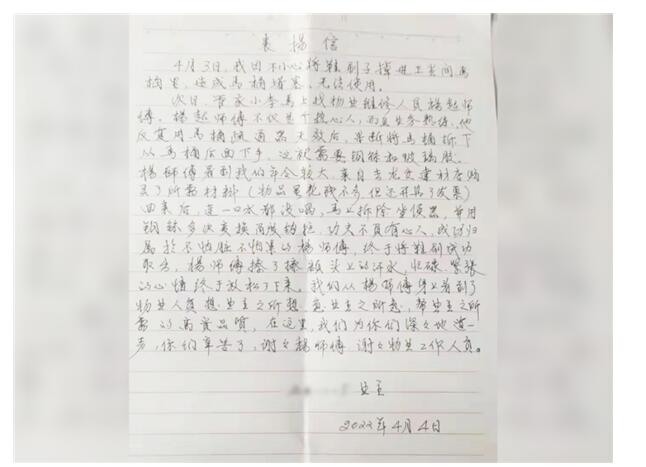 表扬信
4月3日,我因不小心将鞋刷子掉进卫生间马
桶里,造成马桶堵塞,无法使用。
次日,管家小李马上找物业维修人员杨起师
傅。杨起师傅不仅是个热心人,而且业务熟练,他
反复用马桶疏通器无效后,果断将马桶拆下
从马桶后面下手,这就需要钢丝和玻璃胶。
杨师傅看到我们年令较大,亲自去龙文建材店购
买了所需材料(物品虽花钱不多,但还开具了发票)
回来后,连一口水都没喝,马上拆除坐便器,并用
钢丝多次变换角度钩拉,功夫不负有心人,成功归
属於不怕脏不怕累的杨师傅,终于将鞋刷成功
取出,杨师傅擦了擦额头上的汗水,忙碌、紧张
的心情终于放松了下来。我们从杨师傅身上看到了
物业人员想业主之所想,急业主之所急,帮业主之所
需的高贵品质,在这里,我们为你们深々地道一
声,你们辛苦了,谢々杨师傅 谢々物业工作人员。
业主
2022年4月4日